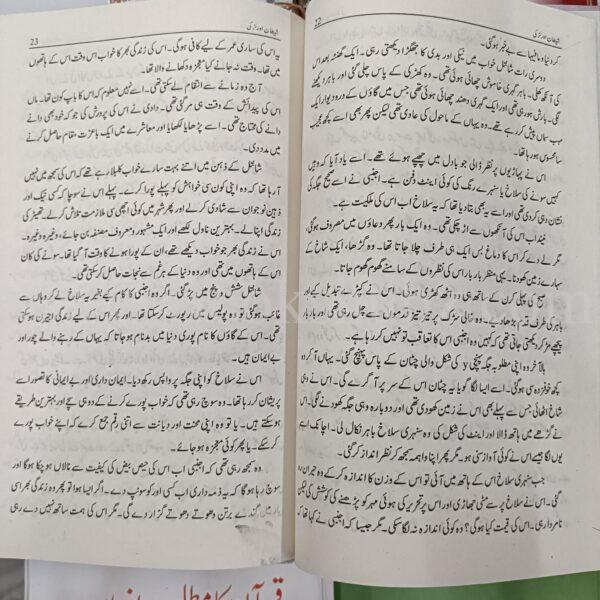 شیطان اور لڑکی
22
کر دنیا و مافیہا سے بے خبر ہو گئی۔
دوسری رات شانتل خواب میں نیکی اور بدی کا جھگڑا دیکھتی رہی۔ ایک گھنٹہ بعد اس
کی آنکھ کھلی۔ باہر گہری خاموشی چھائی ہوئی تھی۔ وہ کھڑکی کے پاس چلی گئی اور باہر دیکھنے
لگی۔ بارش ہو رہی تھی اور ایک گہری دھند چھائی ہوئی تھی جس میں گاؤں کے در و دیوار ایک
مہیب سماں پیش کر رہے تھے۔ وہ یہاں کے ماحول کی عادی تھی لیکن پھر بھی اسے کچھ عجیب
سا محسوس ہو رہا تھا۔
اس نے پہاڑیوں پر نظر ڈالی جو بادل میں چھپے ہوئے تھے۔ اسے یاد آیا کہ وہیں
کہیں سونے کی سلاخ یا سنہرے رنگ کی کوئی اینٹ دفن ہے۔ اجنبی نے اسے صحیح جگہ کی
نشان دہی کر دی تھی اور اسے یہ بھی بتا دیا تھا کہ یہ سلاخ اب اس کی ملکیت ہے۔
نیند اب اس کی آنکھوں سے اڑ چکی تھی۔ وہ ایک بار پھر دعاؤں میں مصروف ہو گئی،
مگر لے دے کر اس کا دماغ بس ایک ہی طرف چلا جاتا تھا۔ وہ گڑھا، ایک شاخ کے
سہارے زمین کھودنا۔ یہی منظر بار بار اس کی نظروں کے سامنے گھوم گھوم جاتا۔
صبح کی پہلی کرن کے ساتھ ہی وہ اٹھ کھڑی ہوئی۔ اس نے کپڑے تبدیل کیے اور
باہر کی طرف قدم بڑھا دیے۔ وہ خالی سڑک پر تیز تیز قدموں سے چل رہی تھی اور بار بار
پیچھے مڑ کر دیکھتی جاتی تھی کہ کہیں اجنبی اس کا تعاقب تو نہیں کر رہا ہے۔
بالآخر وہ اپنی مطلوبہ جگہ پہنچی y کی شکل والی چٹان کے پاس پہنچ گئی۔ یہاں آ کر وہ
کچھ خوفزدہ سی ہو گئی۔ اسے ایسا لگا گویا یہ چٹان اس کے سر پر آ گرے گی۔ اس نے وہی
شاخ اٹھائی جس سے پہلے بھی اس نے زمین کھودی تھی اور دوبارہ وہی جگہ کھودنے لگی۔ اس
نے گڑھے میں ہاتھ ڈالا اور اینٹ کی شکل کی وہ سنہری سلاخ باہر نکال لی۔ اچانک اسے
یوں لگا جیسے اس نے کوئی آواز سنی ہو۔ مگر پھر اپنا واہمہ سمجھ کر نظر انداز کر گئی۔
جب سنہری سلاخ اس کے ہاتھ میں آئی تو اس کے وزن کا اندازہ کر کے وہ حیران رہ
گئی۔ اس نے سلاخ پر سے مٹی جھاڑی اور اس پر تحریر کی ہوئی مہر کو پڑھنے کی کوشش کی لیکن
نامراد رہی۔ اس کی قیمت کیا ہو گی؟ وہ کوئی اندازہ نہ لگا سکی۔ مگر جیسا کہ اجنبی نے کہا تھا کہ
شیطان اور لڑکی
23
یہ اس کی ساری عمر کے لیے کافی ہو گی۔ اس کی زندگی بھر کا خواب اس وقت اس کے ہاتھوں
میں تھا۔ وقت نہ جانے کیا معجزہ دکھانے والا تھا۔
آج وہ زمانے سے انتقام لے سکتی تھی۔ اسے نہیں معلوم کہ اس کا باپ کون تھا۔ ماں
اس کی پیدائش کے وقت ہی مر گئی تھی۔ دادی نے اس کی پرورش کی جو خود بھی دانے
دانے کی محتاج تھی۔ اسے پڑھایا لکھایا اور معاشرے میں ایک باعزت مقام حاصل کرنے
میں مدد دی۔
شانتل کے ذہن میں اتنے بہت سارے خواب کلبلا رہے تھے کہ اس کی سمجھ میں نہیں
آ رہا تھا کہ وہ اپنی کون سی خواہش کو پہلے پورا کرے۔ پہلے اس نے سوچا کہ کسی نیک اور
ذہین نوجوان سے شادی کر لے اور پھر شہر میں کوئی اچھی سی ملازمت تلاش کر لے۔ تھیٹر کی
زندگی اپنا لے۔ بہترین ناول لکھے اور ایک مشہور و معروف مصنفہ بن جائے، وغیرہ وغیرہ۔
اس نے زندگی بھر جو خواب دیکھے تھے، ان کے پورا ہونے کا وقت آ گیا تھا۔ سونے کی کان
اس کے ہاتھ میں تھی اور وہ دنیا کے ہر غم سے نجات حاصل کر سکتی تھی۔
شانتل شش و پنج میں پڑ گئی۔ اگر وہ اجنبی کا کام کیے بغیر یہ سلاخ لے کر وہاں سے
غائب ہو گئی تو وہ پولیس میں رپورٹ کر سکتا تھا۔ اور پھر اس کے لیے زندگی اجیرن ہو سکتی
تھی۔ اس کے گاؤں کا نام پوری دنیا میں بدنام ہو جاتا کہ یہاں کے رہنے والے چور اور
بے ایمان ہیں۔
اس نے سلاخ کو اپنی جگہ پر واپس رکھ دیا۔ ایمان داری اور بے ایمانی کا تصور اسے
پریشان کر رہا تھا۔ وہ سوچ رہی تھی کہ خواب پورے کرنے کے دو ہی سچے اور بہترین طریقے
ہو سکتے ہیں۔ یا تو وہ اپنی محنت اور دیانت سے اتنی رقم جمع کرے کہ اپنے خواب پورے
کر سکے۔ یا پھر کوئی معجزہ ہو جائے۔
وہ سمجھ رہی تھی کہ اجنبی اب اس کی حیص بیص کی کیفیت سے نالاں ہو چکا ہو گا اور
سوچ رہا ہو گا کہ یہ ذمہ داری اب کسی اور کو سونپ دے۔ اگر ایسا ہوا تو پھر وہ زندگی بھر اسی
بار میں گندے برتن دھوتے دھوتے گزار دے گی۔ مگر اس کی ہمت ساتھ نہیں دے رہی